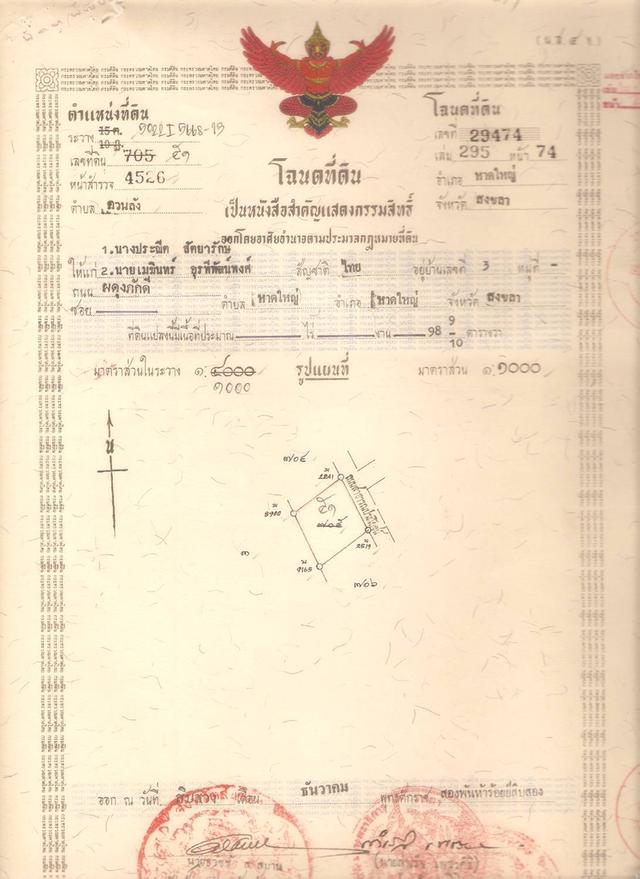 (น.ส. ๔ จ.)
ตำแหน่งที่ดิน
ระวาง 15 ค. 10 ฎ. 5022 I 5668-13
เลขที่ดิน 705 ๕๑
หน้าสำรวจ 4526
ตำบล ควนลัง
โฉนดที่ดิน
เลขที่ 29474
เล่ม 295 หน้า 74
อำเภอ หาดใหญ่
จังหวัด สงขลา
โฉนดที่ดิน
เป็นหนังสือสำคัญแสดงกรรมสิทธิ์
ออกโดยอาศัยอำนาจตามประมวลกฎหมายที่ดิน
1.นางประณีต สัตยารักษ์
ให้แก่ 2.นายเมธินทร์ ธุรพิพัฒน์พงศ์ สัญชาติ ไทย อยู่บ้านเลขที่ 3 หมู่ที่ -
ถนน ผดุงภักดี
ซอย ตำบล หาดใหญ่ อำเภอ หาดใหญ่ จังหวัด สงขลา
ที่ดินแปลงนี้มีเนื้อที่ประมาณ ไร่ งาน 98 9/10 ตารางวา
มาตราส่วนในระวาง ๑: ๔๐๐๐ รูปแผนที่ มาตราส่วน ๑: ๑๐๐๐
๑๐๐๐
น
๗๐๔
๕๑
๗๐๕
๓
๗๐๖
ออก ณ วันที่ ยี่สิบสอง เดือน ธันวาคม พุทธศักราช สองพันห้าร้อยยี่สิบสอง